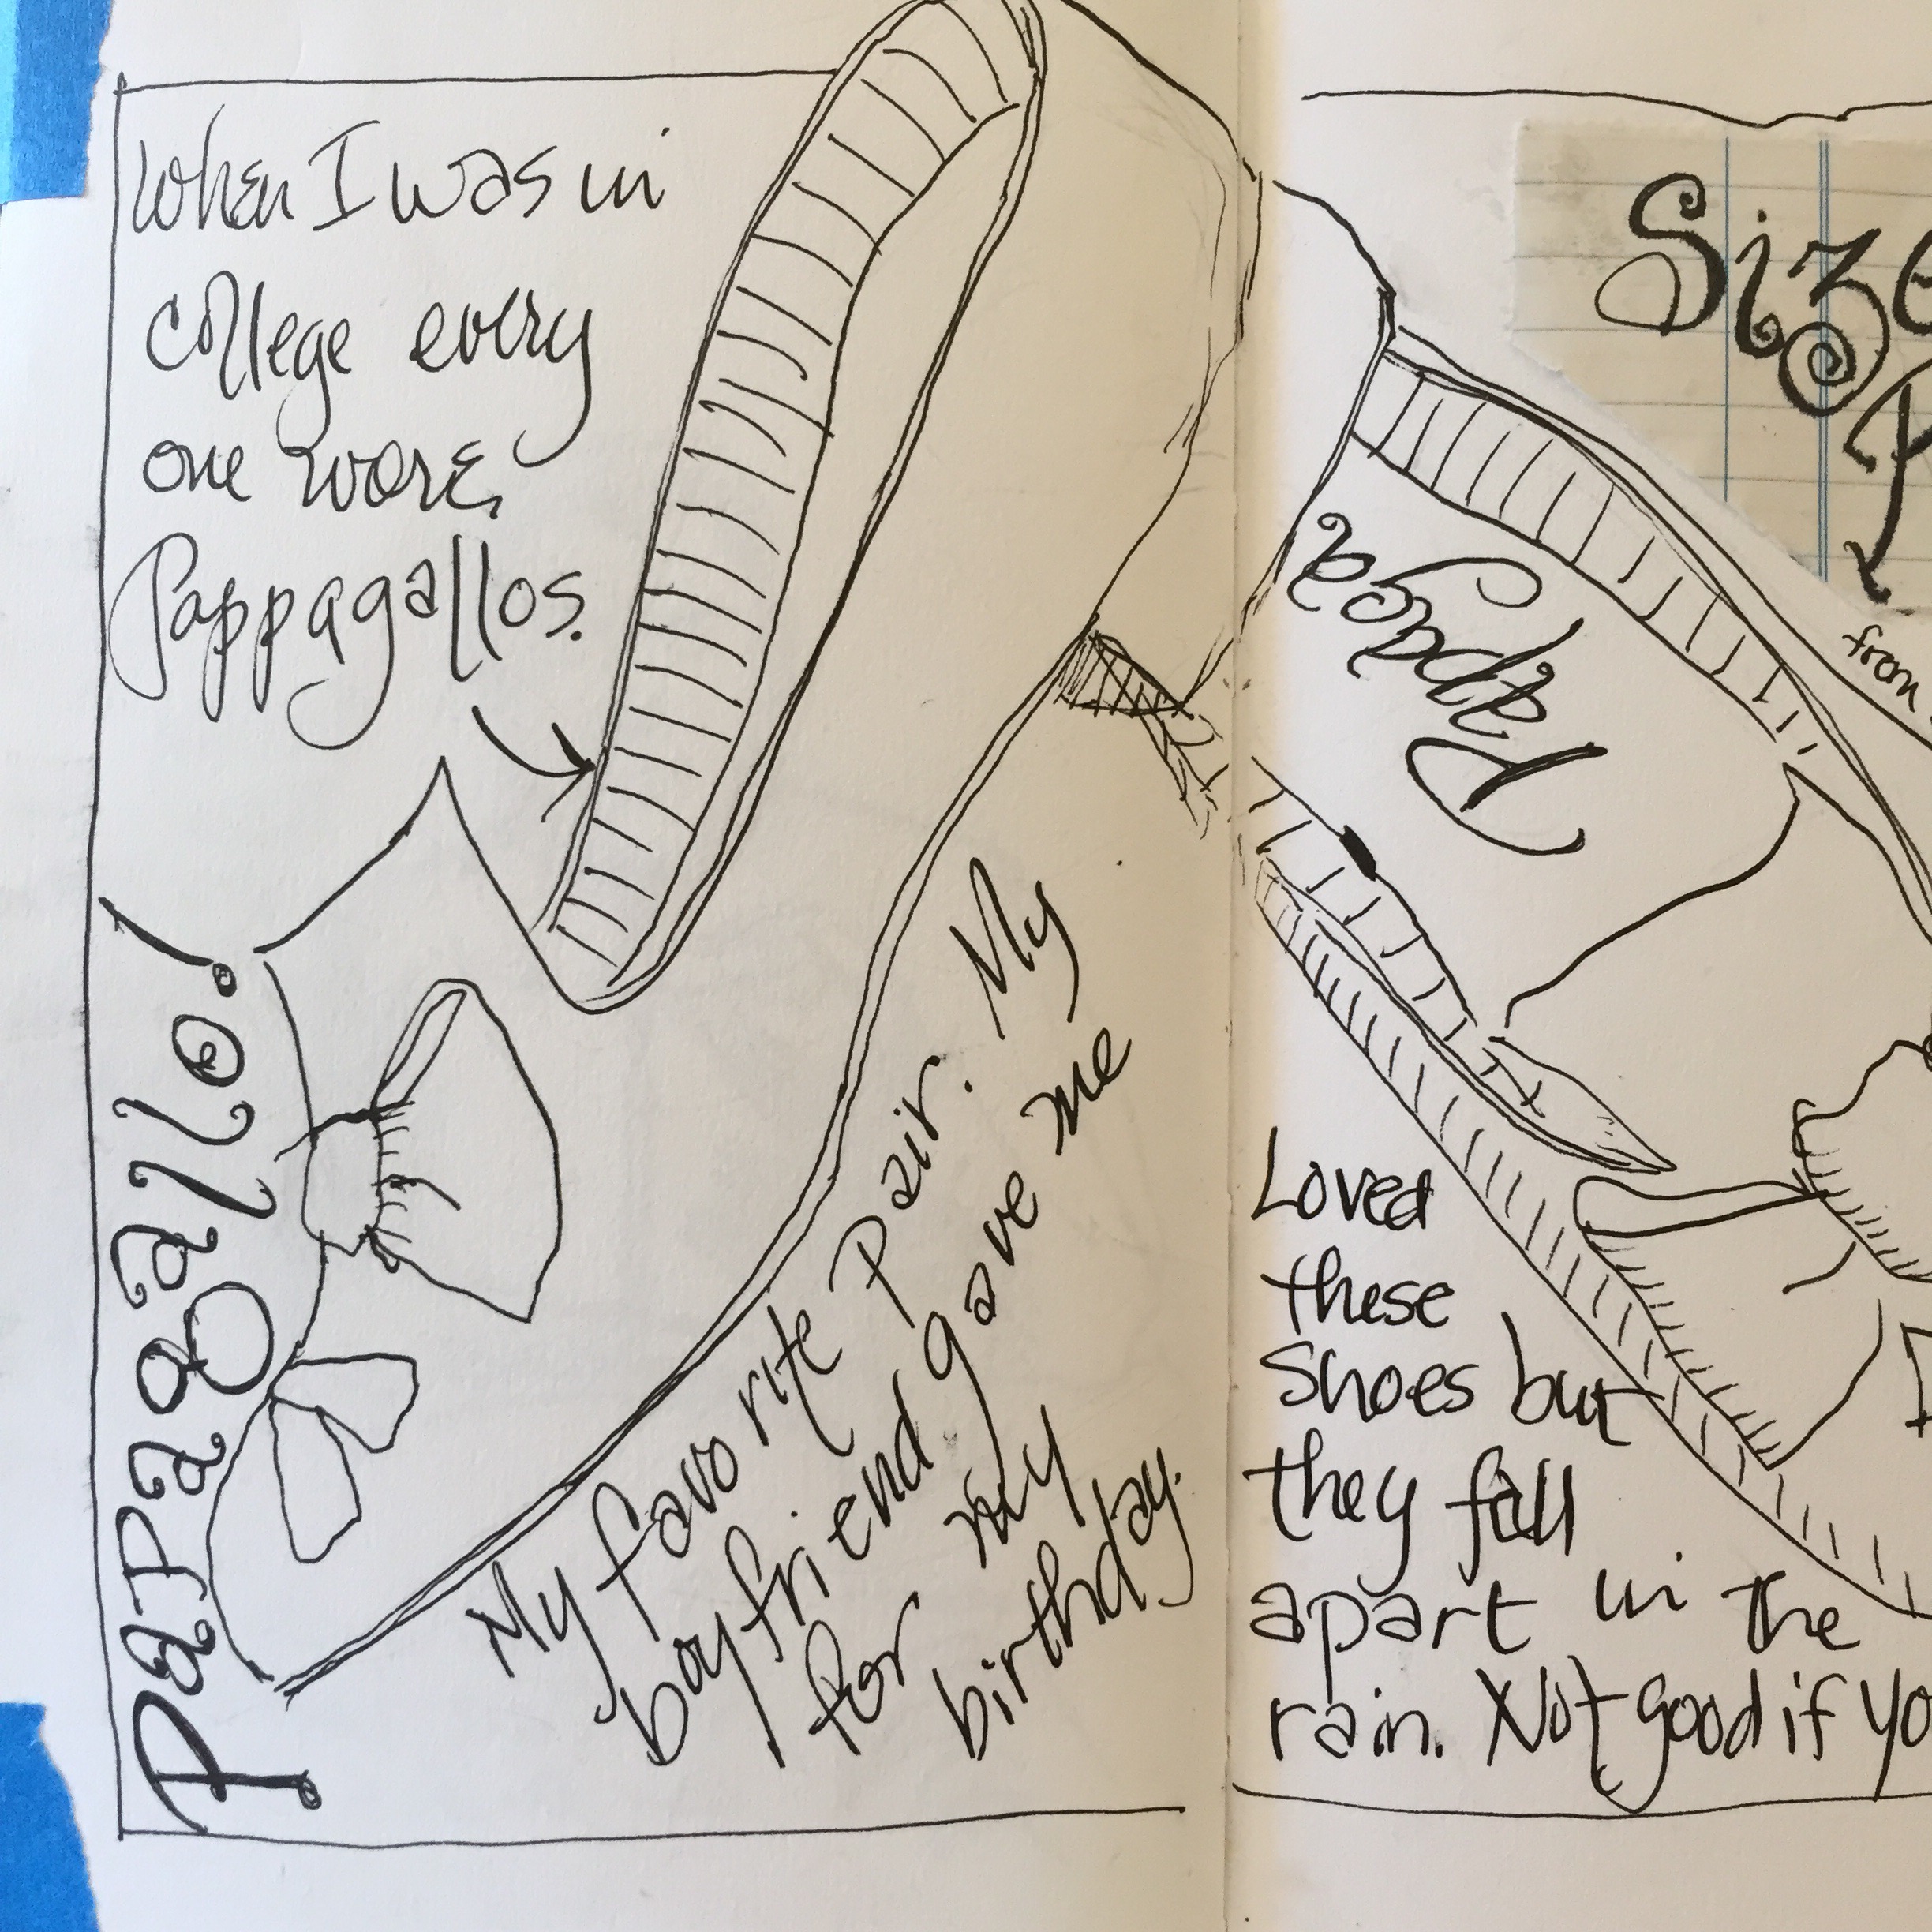 When I was in
college every
one wore
Pappagallos.
PaPagallo!
My favorite Pair. My
boyfriend gave me
for my
birthday.
Size
from
Pappaga
Loved
these
Shoes but
they fall
apart in the
rain. Not good if yo